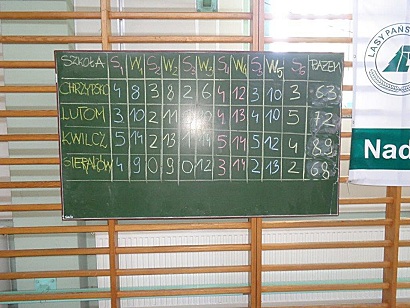 SZKOŁA S1 W1 S2 W2 S3 W3 S4 W4 S5 W5 S6 RAZEM
CHRZYPSKO 4 8 3 8 2 6 4 12 3 10 3 63
LUTOM 3 10 2 11 4 13 4 10 5 72
KWILCZ 5 14 2 13 1 14 5 14 5 12 4 89
SIERAKÓW 4 9 0 9 0 12 3 14 2 13 2 68
LASY PAŃS
Nad